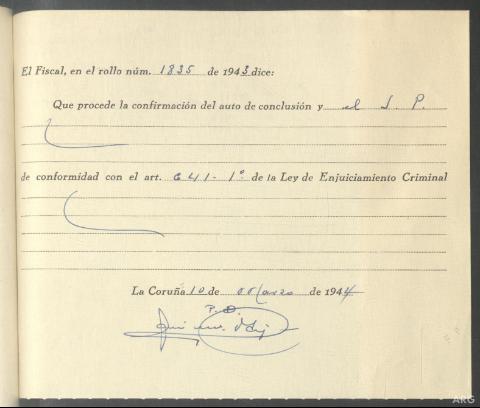 El Fiscal, en el rollo núm. 1835 de 1943 dice:
Que procede la confirmación del auto de conclusión y el S. P.
de conformidad con el art. 641-1º de la Ley de Enjuiciamiento Criminal
La Coruña 10 de Marzo de 1944
P.D.
ARG